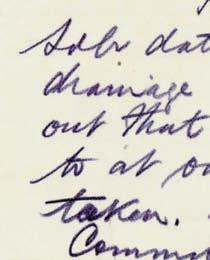 dat
drainage
out that
to at
taken.
Comm